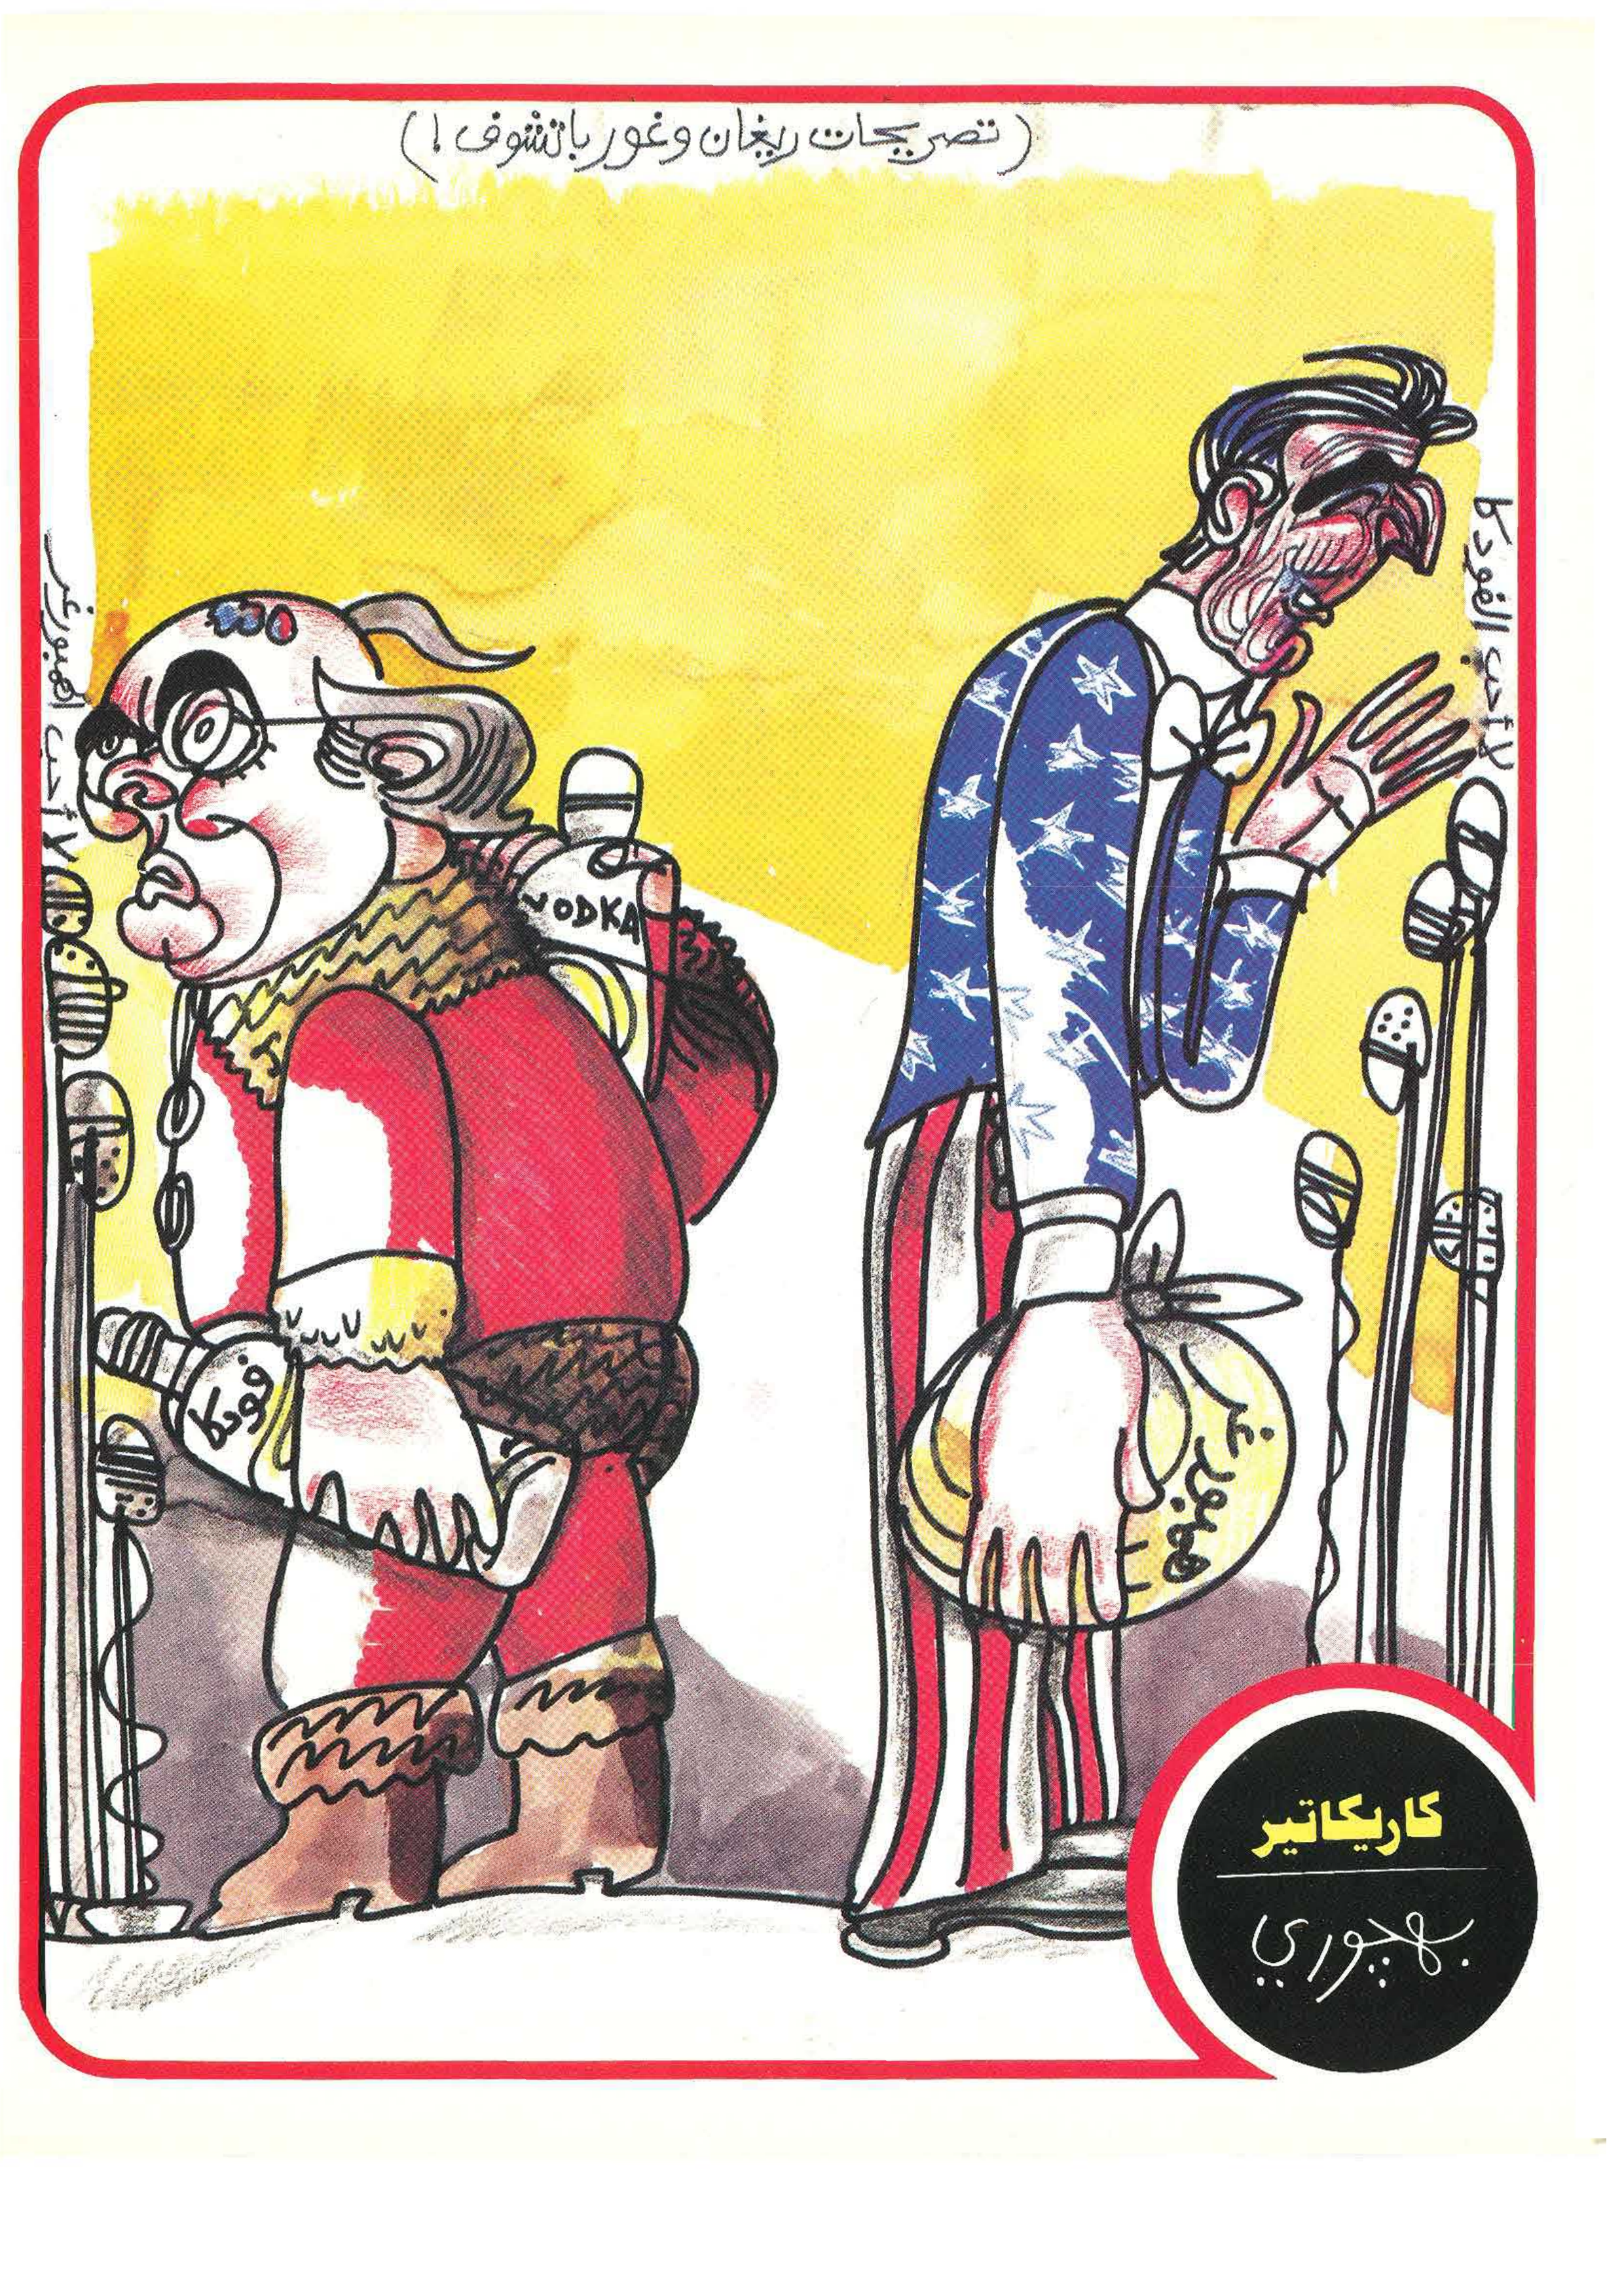 (تصريحات ريغان وغورباتشوف!)
لا أحب الفودكا
لا أحب الهمبورغر
VODKA
فودكا
همبورغر
كاريكاتير
بهجوري